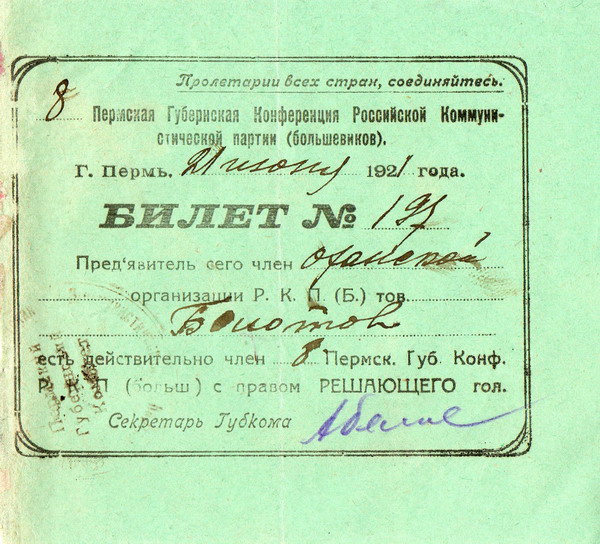 Пролетарии всех стран, соединяйтесь.
8 Пермская Губернская Конференция Российской Коммуни-
стической партии (большевиков).
Г. Пермь. 21 июня 1921 года.
БИЛЕТ № 197
Пред'явитель сего член Оханской
организации Р. К. П. (Б.) тов.
Болотов
есть действительно член 8 Пермск. Губ. Конф.
Р. К. П (больш) с правом РЕШАЮЩЕГО гол.
Секретарь Губкома